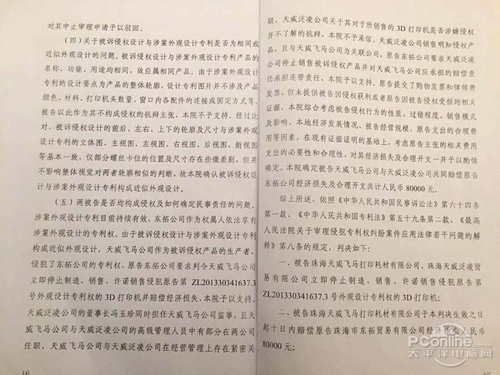 对其中止审理申请予以驳回。
（四）关于被诉侵权设计与涉案外观设计专利是否为相同或
近似外观设计的问题。被诉侵权产品与涉案外观设计专利产品的
名称、功能、用途均相同，故应属相同产品。由于涉案外观设计
专利的设计要点为产品的整体轮廓，设计专利图片并不涉及产品
颜色、材料、打印机头数量、窗口内各配件的连接或固定方式等，
被告以此作为其不构成侵权的抗辩主张，本院不予支持。经过比
对，被诉侵权设计的前后、左右、上下的轮廓及尺寸与涉案外观
设计专利的立体图、主视图、左视图、右视图、后视图、俯视图
等基本一致，仅部分螺丝卡位的位置及尺寸存在些微差别，但并
不影响整体视觉对两者轮廓相同的判断，故本院确认被诉侵权设
计与涉案外观设计专利构成近似外观设计。
（五）两被告是否均构成侵权及如何确定民事责任的问题。
涉案外观设计专利目前持续有效，东拓公司作为权属人依法享有
涉案外观设计的专利权。由于被诉侵权设计与涉案外观设计专利
构成近似外观设计，天威飞马公司作为被诉侵权产品的生产者，
侵犯了东拓公司的专利权，原告东拓公司要求判令天威飞马公司
立即停止制造、销售、许诺销售侵犯原告第
ZL201330341637.3
号外观设计专利权的 3D 打印机并赔偿经济损失，本院予以支持。
天威泛凌公司的董事长冯玉珍同时担任天威飞马公司监事，且天
威飞马公司与天威泛凌公司的高级管理人员中有部分在两公司
任职，天威飞马公司与天威泛凌公司在经营管理上存在紧密关
16
联，天威泛凌公司关于其对于所销售的 3D 打印机是否涉嫌侵权
并不了解的抗辩，本院不予采信。天威泛凌公司销售明知侵权产
品，且与天威飞马公司为关联公司，原告东拓公司要求天威泛凌
公司停止销售被诉侵权产品并对天威飞马公司应承担的赔偿责
任承担连带责任，本院予以支持。原告提交了购物发票和律师费
发票，但未提供被告因侵权获利或者原告因被告侵权受损的相关
证据。本院综合考虑被告侵权行为的性质、过错程度，销售模式
及影响，本地经济发展情况，被告经营规模，原告支出的合理费
用等因素，在现有证据证明的基础上，考虑原告主张的相关费用
支出的必要性和合理性，对其经济损失及合理开支一并予以酌情
确定，本院确定被告天威飞马公司与天威泛凌公司共同赔偿原告
东拓公司经济损失及合理开支共计人民币 80000 元。
综上所述，依照《中华人民共和国民事诉讼法》第六十四条
第一款，《中华人民共和国专利法》第五十九条第二款，《最高
人民法院关于审理侵犯专利权纠纷案件应用法律若干问题的解
释》第八条的规定，判决如下：
一、被告珠海天威飞马打印耗材有限公司、珠海天威泛凌贸
易有限公司立即停止制造、销售、许诺销售侵犯原告第
ZL201330341637.3 号外观设计专利权的 3D 打印机；
二、被告珠海天威飞马打印耗材有限公司于本判决生效之日
起十日内赔偿原告珠海市东拓贸易有限公司经济损失人民币
80000 元；
17
PConline
太平洋电脑网